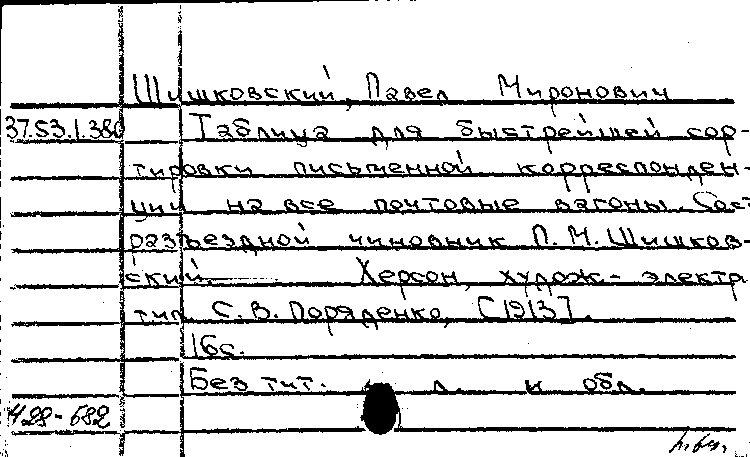 Шишковский, Павел Миронович
37.53.1.380 Таблица для быстрейшей сор-
тировки письменной корреспонден-
ции на все почтовые вагоны. Сост.
разъездной чиновник П. М. Шишков-
ский. Херсон, худож.- электр.
тип. С. В. Поряденко, [1913].
16с.
Без тит. л. и обл.
428-682